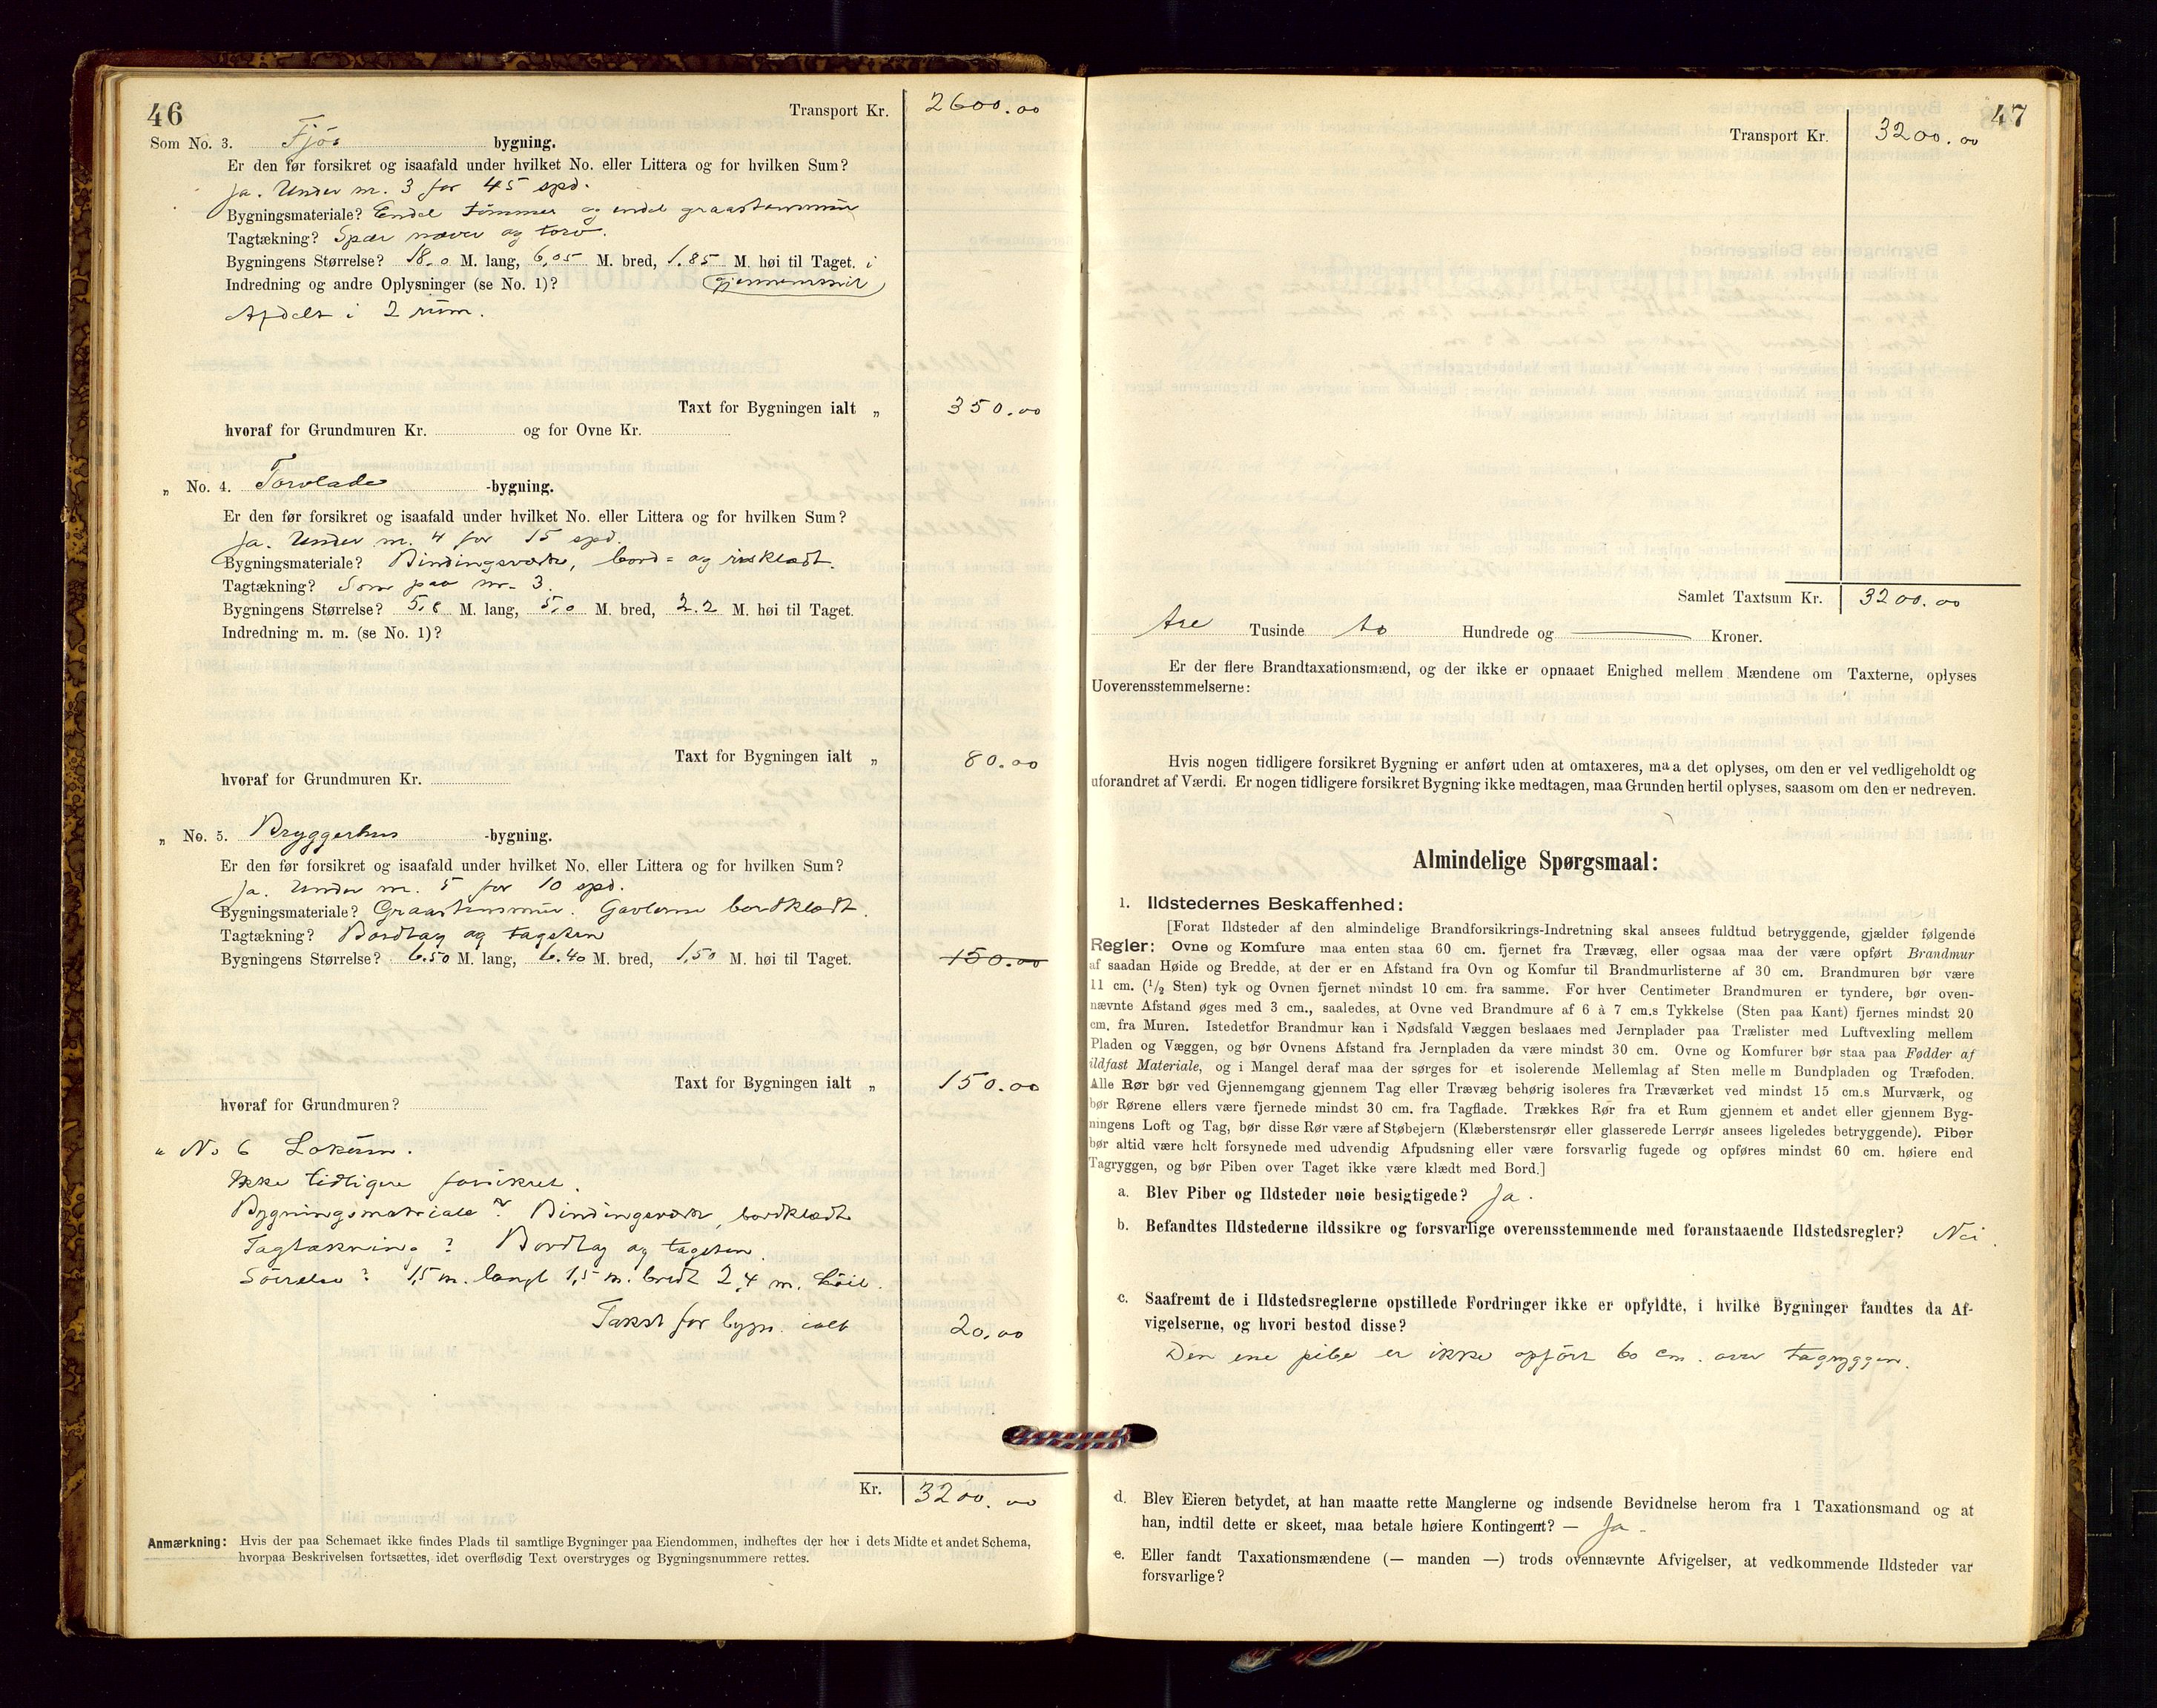 46
Transport Kr. 2600.00
Som No. 3. Fjøs bygning.
Er den før forsikret og isaafald under hvilket No. eller Littera og for hvilken Sum?
Ja. Under nr. 3 for 45 spd.
Bygningsmateriale? Endel tømmer og endel graastensmur
Tagtækning? Spær næver og torv.
Bygningens Størrelse? 18.0 M. lang, 6,05 M. bred, 1.85 M. høi til Taget. i
Indredning og andre Oplysninger (se No. 1)? gjennemsnit
Afdelt i 2 rum.
Taxt for Bygningen ialt „ 350.00
hvoraf for Grundmuren Kr. og for Ovne Kr.
„ No. 4. Torvlade -bygning.
Er den før forsikret og isaafald under hvilket No. eller Littera og for hvilken Sum?
Ja. Under nr. 4 for 15 spd.
Bygningsmateriale? Bindingsverk, bord= og risklædt.
Tagtækning? Som paa nr. 3.
Bygningens Størrelse? 5,8 M. lang, 5,0 M. bred, 2.2 M. høi til Taget.
Indredning m. m. (se No. 1)?
Taxt for Bygningen ialt „ 80.00
hvoraf for Grundmuren Kr.
„ No. 5. Bryggerhus -bygning.
Er den før forsikret og isaafald under hvilket No. eller Littera og for hvilken Sum?
Ja. Under nr. 5 for 10 spd.
Bygningsmateriale? Graastensmur. Gavlerne bordklædt.
Tagtækning? Bordtag og tagsten
Bygningens Størrelse? 6.50 M. lang, 6.40 M. bred, 1,50 M. høi til Taget. 150.00
Taxt for Bygningen ialt „ 150.00
hvoraf for Grundmuren?
„ No 6 Lokum.
Ikke tidligere forsikret.
Bygningsmateriale? Bindingsverk, bordklædt
Tagtækning? Bordtag og tagsten.
Størrelse? 1,5 m. langt 1,5 m. bredt 2,4 m. høit.
Takst for bygn. ialt 20,00
Kr. 3200.00
Anmærkning: Hvis der paa Schemaet ikke findes Plads til samtlige Bygninger paa Eiendommen, indheftes der her i dets Midte et andet Schema,
hvorpaa Beskrivelsen fortsættes, idet overflødig Text overstryges og Bygningsnummere rettes.
47
Transport Kr. 3200.00
Samlet Taxtsum Kr. 3200.00
tre Tusinde to Hundrede og Kroner.
Er der flere Brandtaxationsmænd, og der ikke er opnaaet Enighed mellem Mændene om Taxterne, oplyses
Uoverensstemmelserne:
Hvis nogen tidligere forsikret Bygning er anført uden at omtaxeres, maa det oplyses, om den er vel vedligeholdt og
uforandret af Værdi. Er nogen tidligere forsikret Bygning ikke medtagen, maa Grunden hertil oplyses, saasom om den er nedreven.
Almindelige Spørgsmaal:
1. Ildstedernes Beskaffenhed:
[Forat Ildsteder af den almindelige Brandforsikrings-Indretning skal ansees fuldtud betryggende, gjælder følgende
Regler: Ovne og Komfure maa enten staa 60 cm. fjernet fra Trævæg, eller ogsaa maa der være opført Brandmur
af saadan Høide og Bredde, at der er en Afstand fra Ovn og Komfur til Brandmurlisterne af 30 cm. Brandmuren bør være
11 cm. (1/2 Sten) tyk og Ovnen fjernet mindst 10 cm. fra samme. For hver Centimeter Brandmuren er tyndere, bør oven-
nævnte Afstand øges med 3 cm., saaledes, at Ovne ved Brandmure af 6 à 7 cm.s Tykkelse (Sten paa Kant) fjernes mindst 20
cm. fra Muren. Istedetfor Brandmur kan i Nødsfald Væggen beslaaes med Jernplader paa Trælister med Luftvexling mellem
Pladen og Væggen, og bør Ovnens Afstand fra Jernpladen da være mindst 30 cm. Ovne og Komfurer bør staa paa Fødder af
ildfast Materiale, og i Mangel deraf maa der sørges for et isolerende Mellemlag af Sten mellem Bundpladen og Træfoden.
Alle Rør bør ved Gjennemgang gjennem Tag eller Trævæg behørig isoleres fra Træværket ved mindst 15 cm.s Murværk, og
bør Rørene ellers være fjernede mindst 30 cm. fra Tagflade. Trækkes Rør fra et Rum gjennem et andet eller gjennem Byg-
ningens Loft og Tag, bør disse Rør være af Støbejern (Klæberstensrør eller glasserede Lerrør ansees ligeledes betryggende). Piber
bør altid være helt forsynede med udvendig Afpudsning eller være forsvarlig fugede og opføres mindst 60 cm. høiere end
Tagryggen, og bør Piben over Taget ikke være klædt med Bord.]
a. Blev Piber og Ildsteder nøie besigtigede? Ja.
b. Befandtes Ildstederne ildssikre og forsvarlige overensstemmende med foranstaaende Ildstedsregler? Nei.
c. Saafremt de i Ildstedsreglerne opstillede Fordringer ikke er opfyldte, i hvilke Bygninger fandtes da Af-
vigelserne, og hvori bestod disse?
Den ene pibe er ikke opført 60 cm. over tagryggen.
d. Blev Eieren betydet, at han maatte rette Manglerne og indsende Bevidnelse herom fra 1 Taxationsmand og at
han, indtil dette er skeet, maa betale høiere Kontingent? — Ja
e. Eller fandt Taxationsmændene (— manden —) trods ovennævnte Afvigelser, at vedkommende Ildsteder var
forsvarlige?